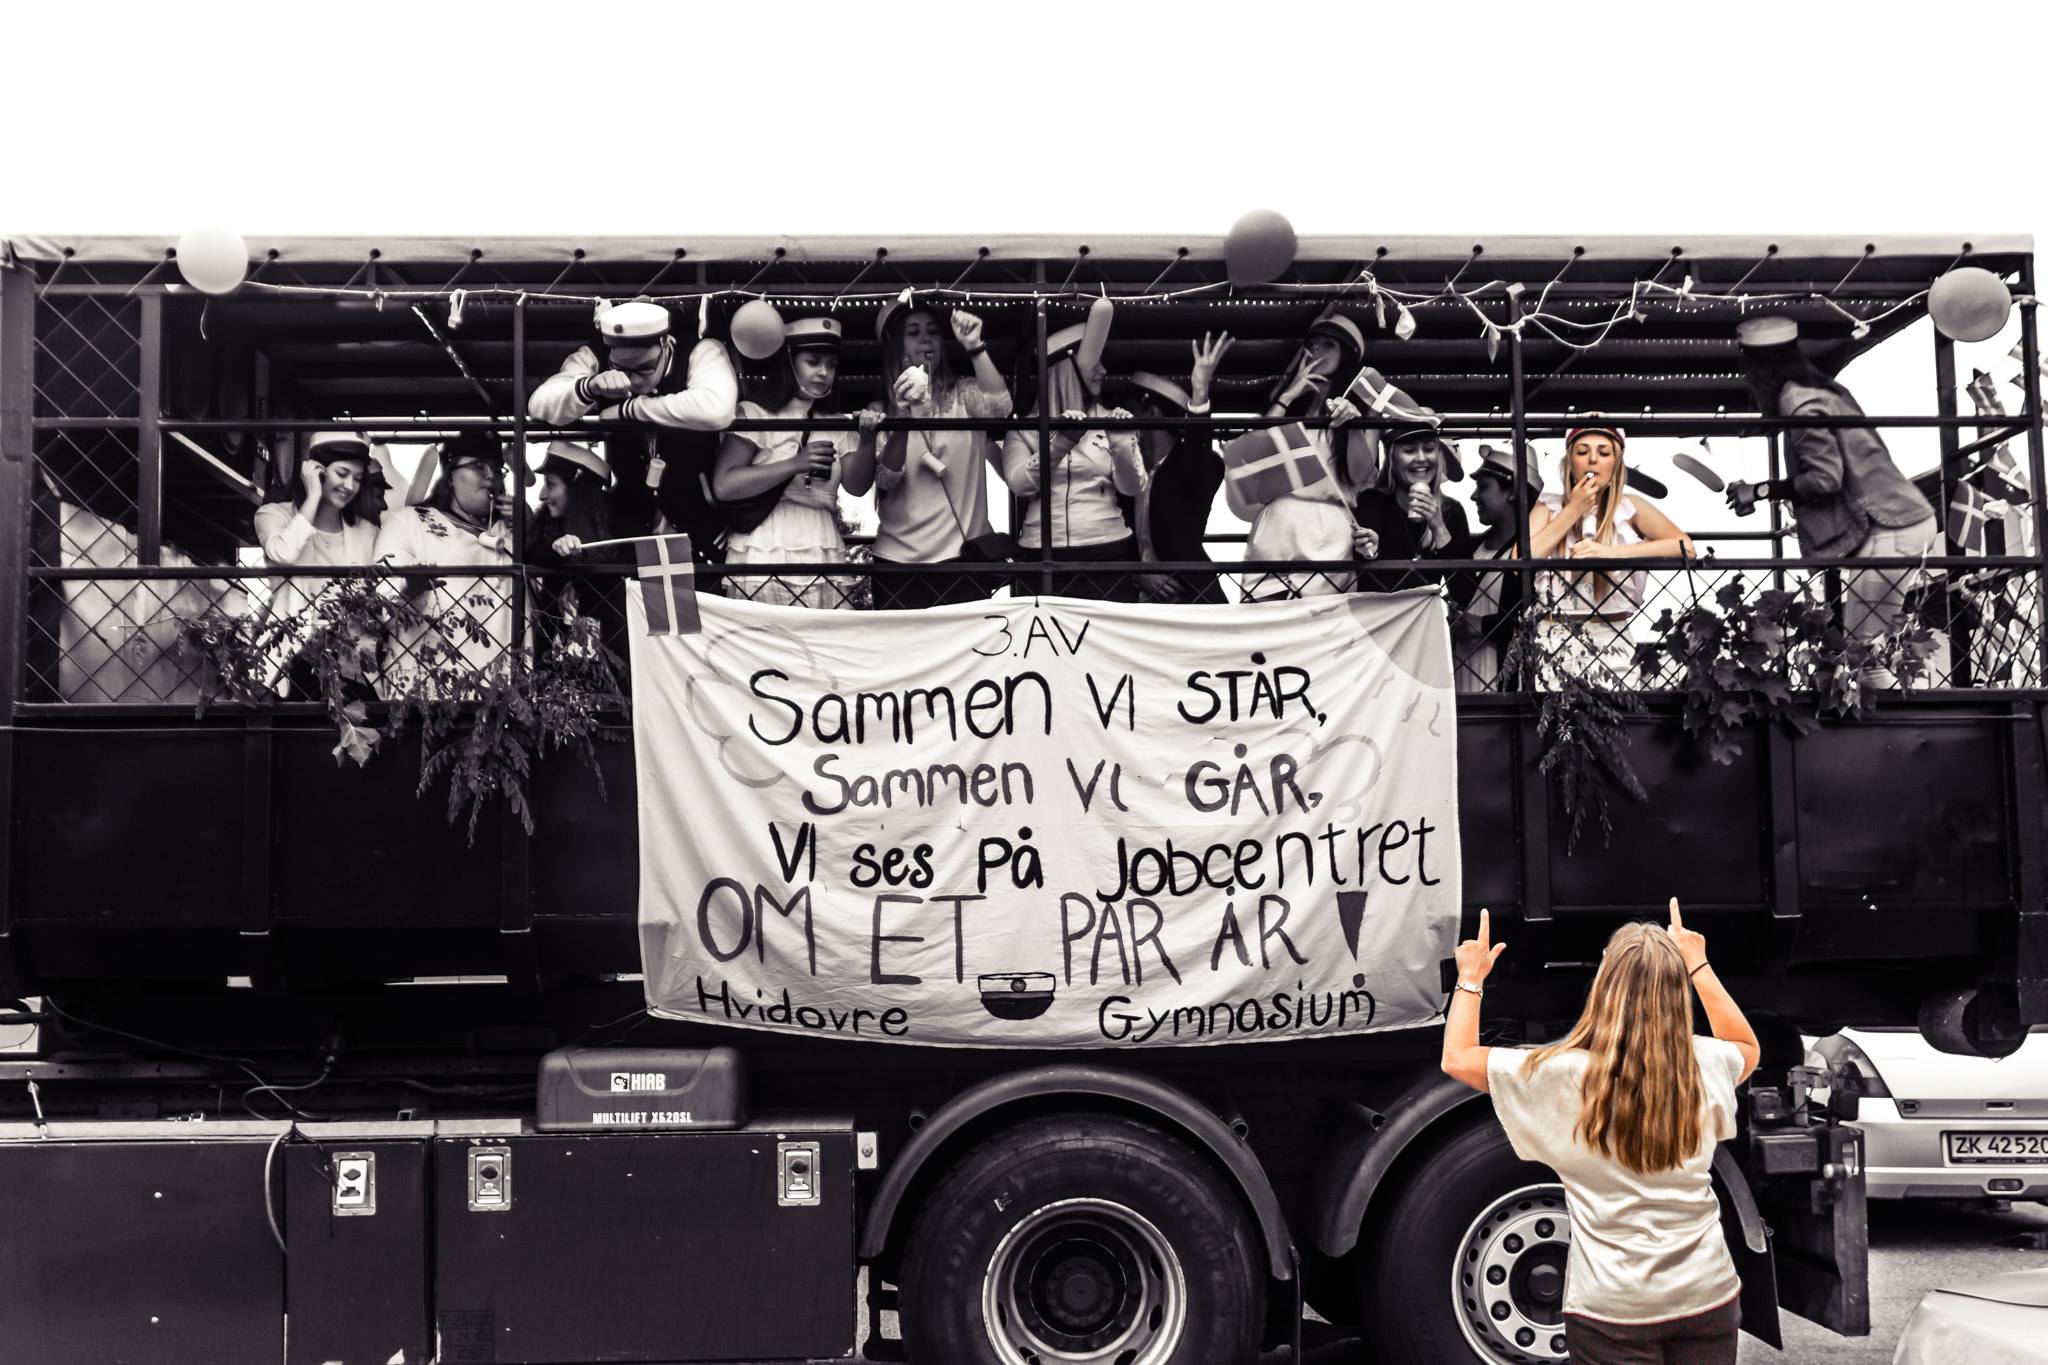 3.AV
Sammen VI STÅR,
Sammen VI GÅR,
VI ses På Jobcentret
OM ET PAR ÅR!
Hvidovre Gymnasium
HIAB
MULTILIFT XR20SL
ZK 42520